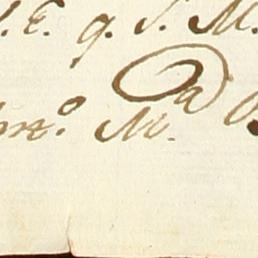 E. q. S. M.
m.º M.ª